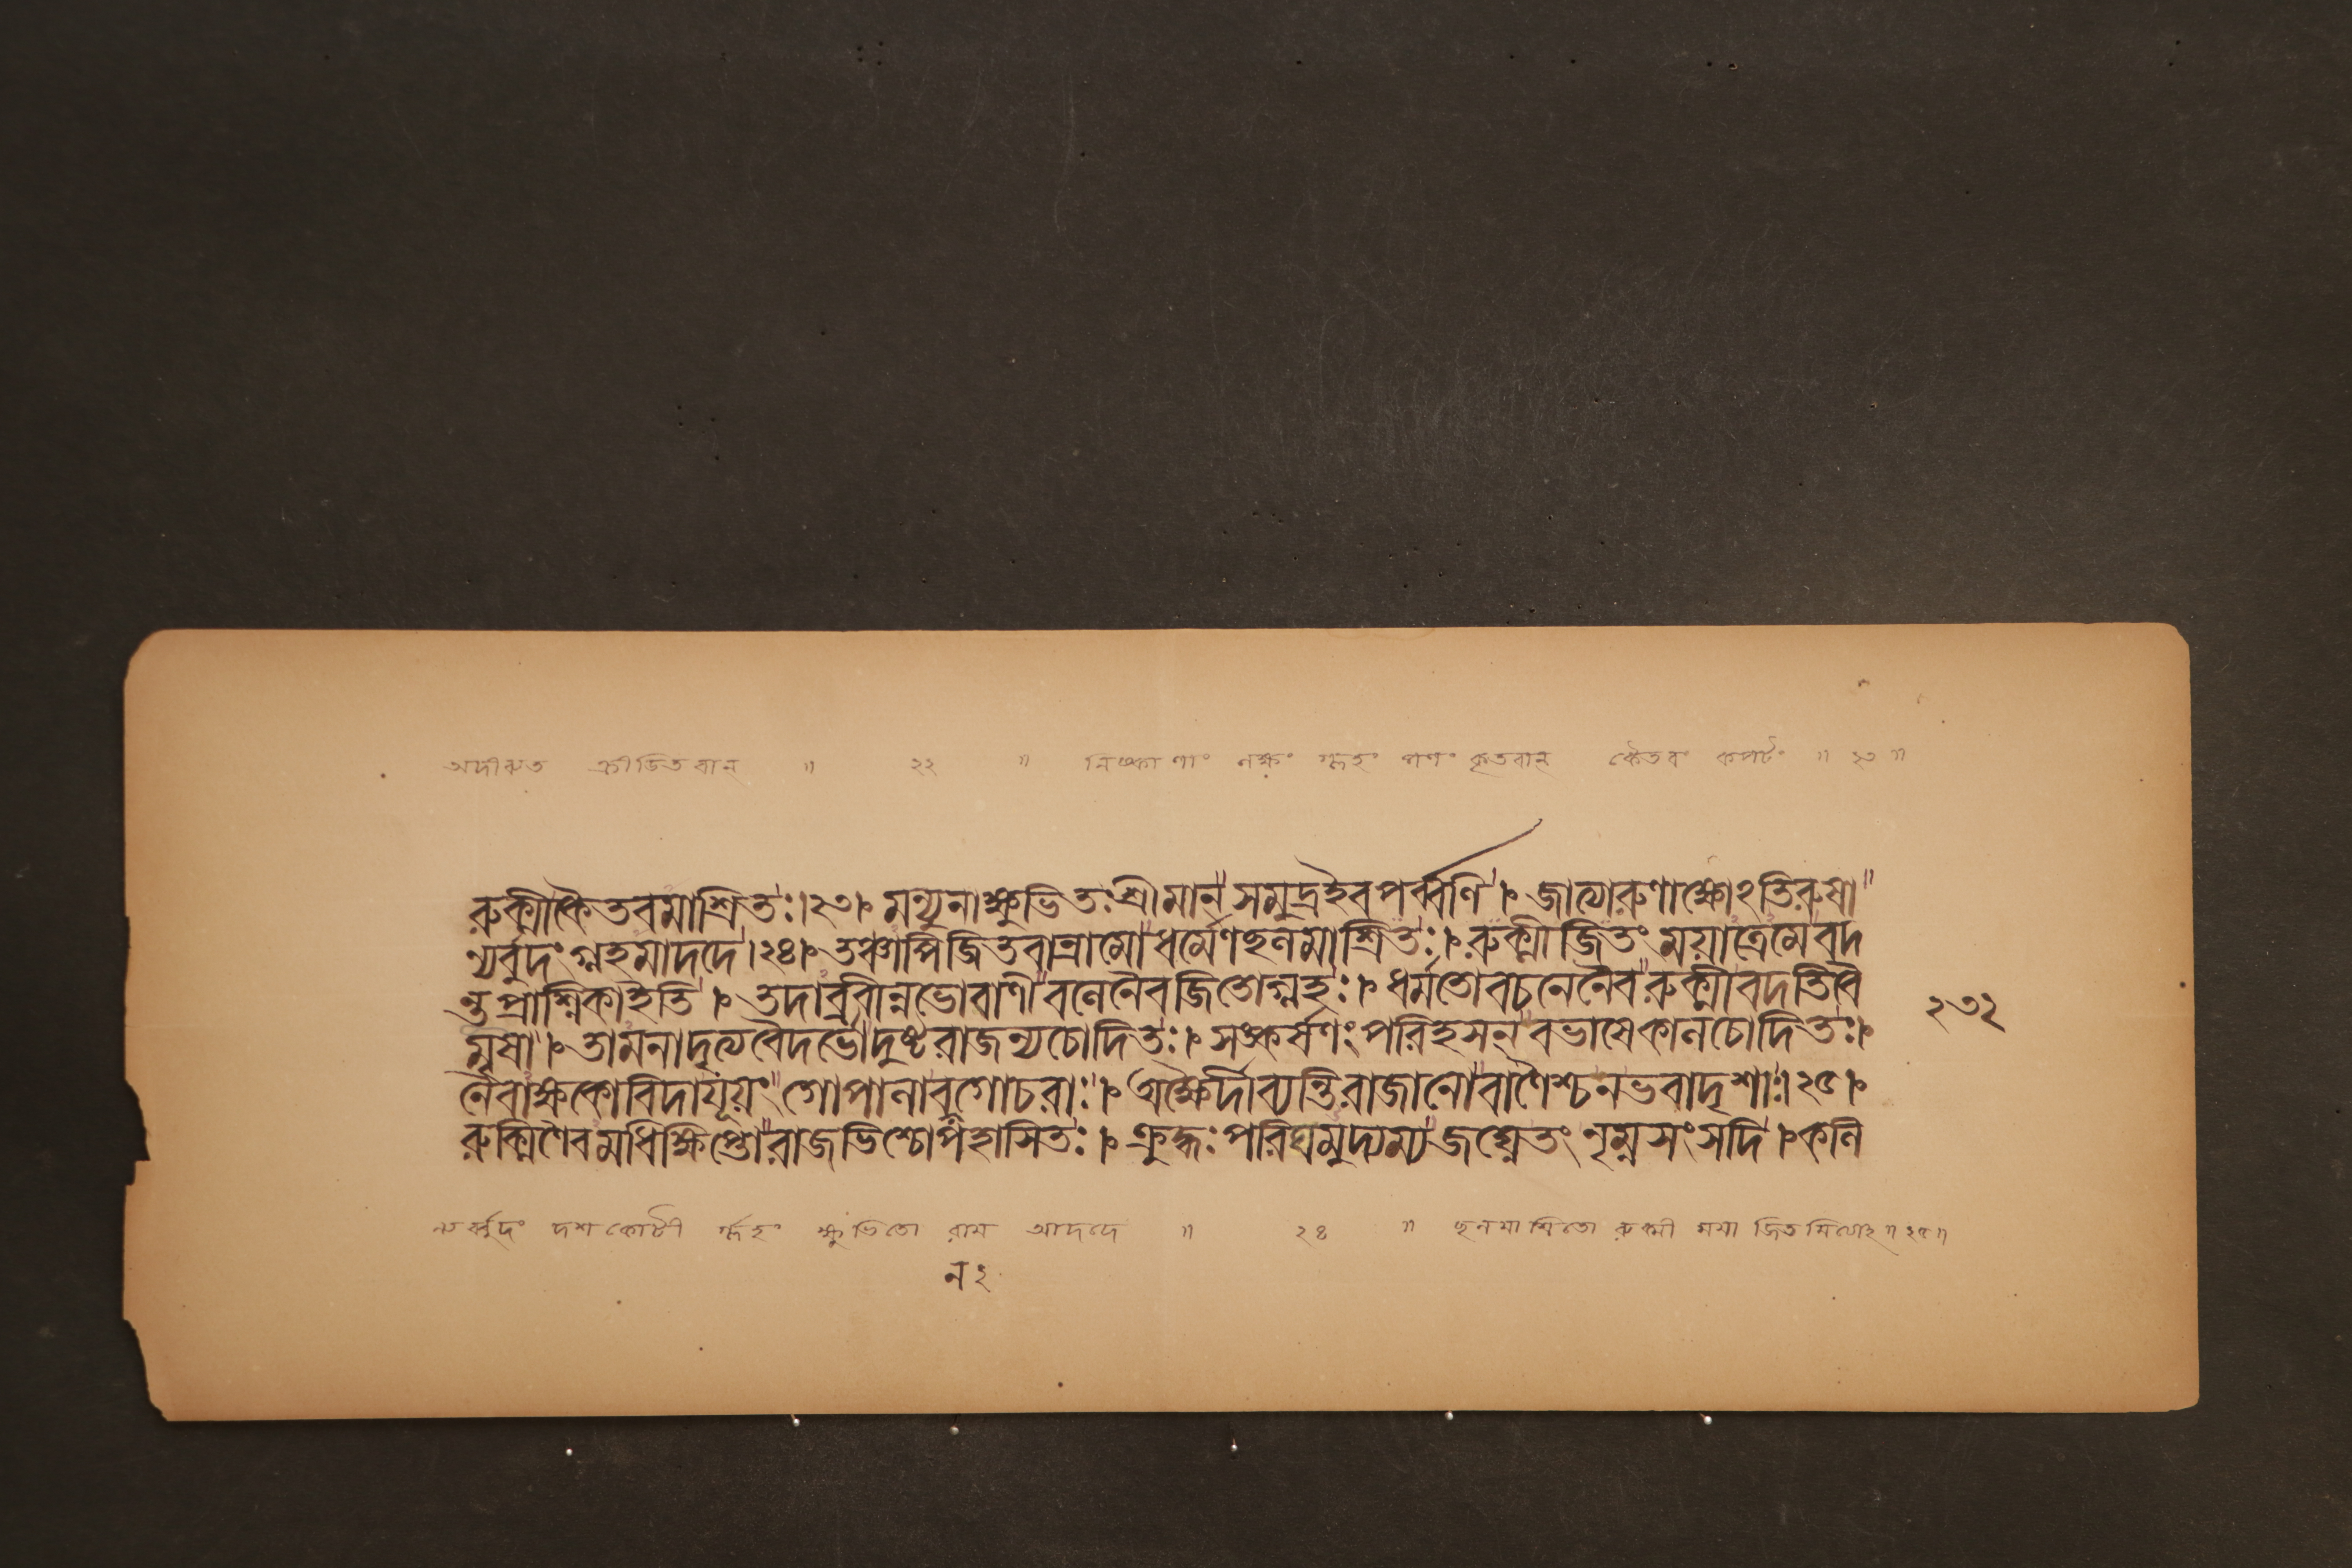 অদীব্যত ক্রীডিতবান্ ॥ ২২ ॥ নিষ্কাণাং লক্ষং গ্লহং পণং কৃতবান্ কৈতবং কপটং ॥ ২৩ ॥
রুক্মীকৈতবমাশ্রিতঃ।২৩। মন্যুনাক্ষুভিতঃশ্রীমান্ সমুদ্রইবপর্ব্বণি । জাত্যারুণাক্ষোঽতিরুষা
ন্যর্বুদংগ্লহমাদদে।২৪। তঞ্চাপিজিতবান্রামোধর্মেণছলমাশ্রিতঃ। রুক্মীজিতংময়াত্রেমেবদ
ন্তুপ্রাশ্নিকাইতি । তদাব্রবীন্নভোবাণীবলেনৈবজিতোগ্লহঃ। ধর্মতোবচনেনৈবরুক্মীবদতিবৈ
মৃষা । তামনাদৃত্যবৈদর্ভোদুষ্টরাজন্যচোদিতঃ। সঙ্কর্ষণংপরিহসন্ বভাষেকালচোদিতঃ।
নৈবাক্ষকোবিদাযূয়ংগোপালাবনগোচরাঃ। অক্ষৈর্দীব্যন্তিরাজানোবাণৈশ্চনভবাদৃশাঃ।২৫।
রুক্মিণৈবমধিক্ষিপ্তোরাজভিশ্চোপহাসিতঃ। ক্রুদ্ধঃপরিঘমুদ্যম্যজঘ্নেতং নৃম্নসংসদি । কলি
২৩২
ন্যর্ব্বুদং দশকোটী র্গ্লহং ক্ষুভিতো রাম আদদে ॥ ২৪ ॥ ছলমাশ্রিতো রুক্মী ময়া জিতমিত্যাহ ॥ ২৫ ॥
ন ২